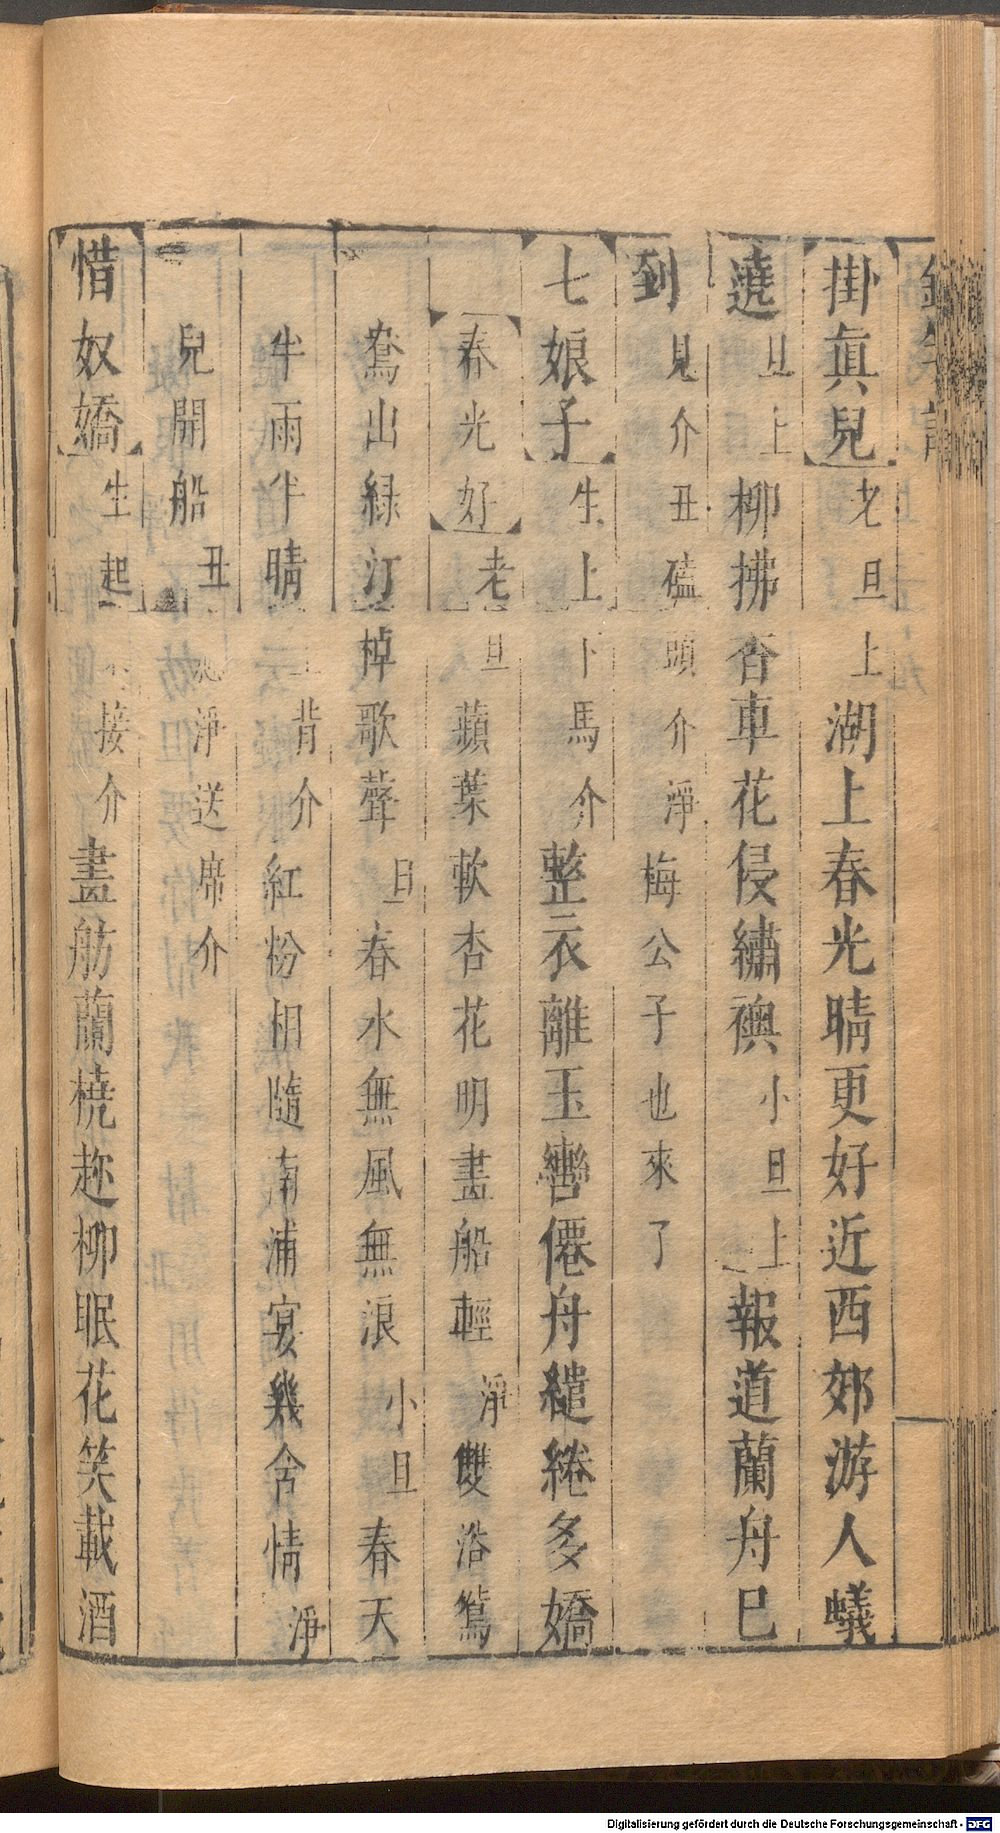 掛眞兒老旦上湖上春光晴更好近西郊游人蟻
遶旦上柳拂香車花侵繡襖小旦上報道蘭舟已
到見介丑磕頭介淨梅公子也來了
七娘子生上下馬介整衣離玉轡僊舟繾綣多嬌
春光好老旦蘋葉軟杏花明畫船輕淨雙浴鴛
鴦出綠汀棹歌聲旦春水無風無浪小旦春天
半雨半晴背介紅粉相隨南浦宴幾含情淨
兒開船丑淨送席介
惜奴嬌生起接介畫舫蘭橈趂柳眠花笑載酒
Digitalisierung gefördert durch die Deutsche Forschungsgemeinschaft - DFG